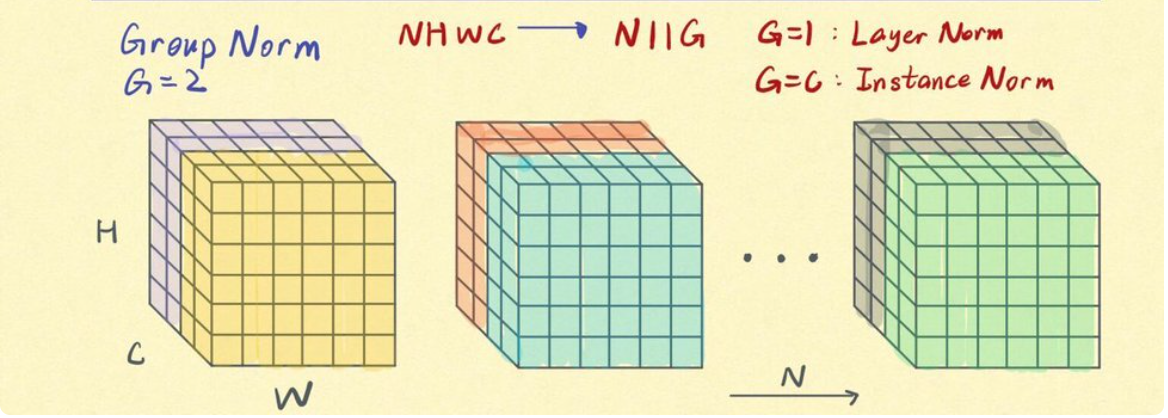 Group Norm
G=2
NHWC → N11G
G=1 : Layer Norm
G=C : Instance Norm
H
C
W
...
N